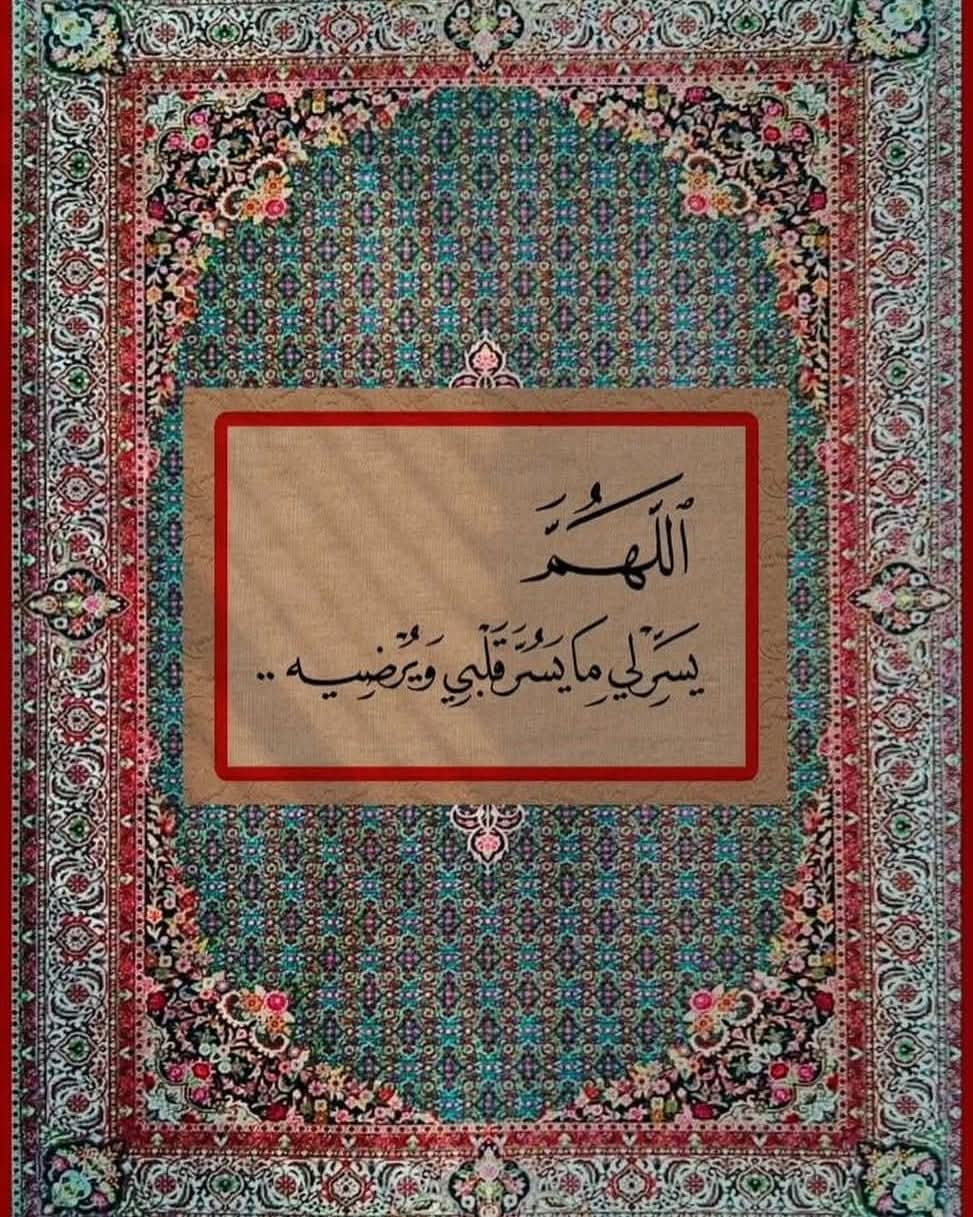 ٱللَّهُمَّ
يَسِّرْ لِي مَا يَسُرُّ قَلْبِي وَيُرْضِيه ..